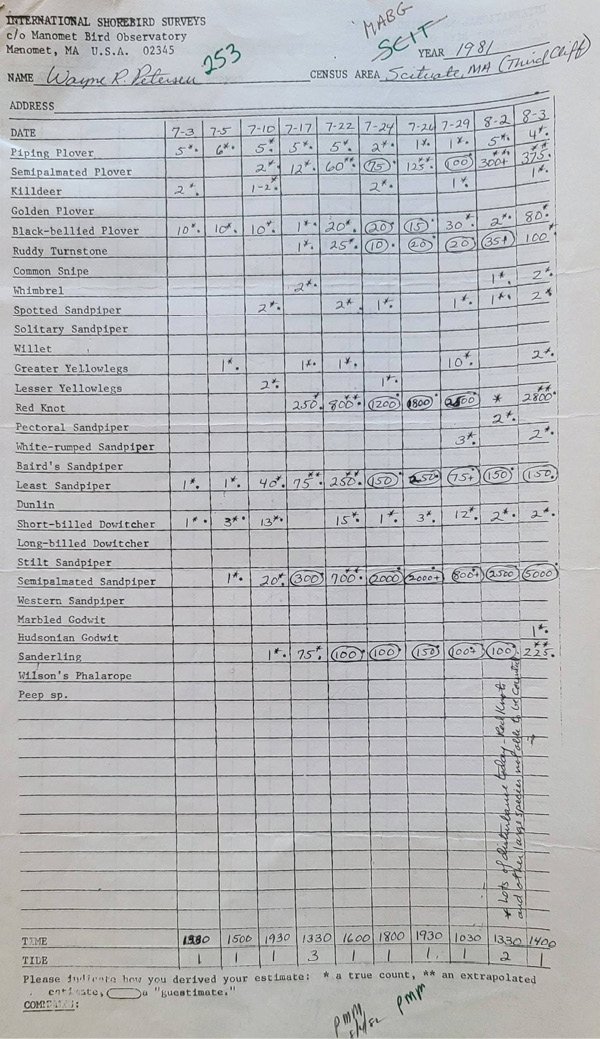 INTERNATIONAL SHOREBIRD SURVEYS
c/o Manomet Bird Observatory
Manomet, MA U.S.A. 02345
MABG
SCIT
253
YEAR 1981
NAME Wayne R. Petersen CENSUS AREA Scituate, MA (Third Cliff)
ADDRESS
DATE 7-3 7-5 7-10 7-17 7-22 7-24 7-26 7-29 8-2 8-3
Piping Plover 5* 6* 5* 5* 5* 2* 1* 1* 5* 4*
Semipalmated Plover 2* 12* 60** 75 125** 100 300+ 375**
Killdeer 2* 1-2* 2* 1* 1*
Golden Plover
Black-bellied Plover 10* 10* 10* 1* 20* 20 15 30* 2* 80*
Ruddy Turnstone 1* 25* 10 20 20 35+ 100*
Common Snipe
Whimbrel 2* 1* 2*
Spotted Sandpiper 2* 2* 1* 1* 1* 2*
Solitary Sandpiper
Willet
Greater Yellowlegs 1* 1* 1* 10* 2*
Lesser Yellowlegs 2* 1*
Red Knot 250* 800** 1200 1800 2500 * 2800**
Pectoral Sandpiper 2*
White-rumped Sandpiper 3* 2*
Baird's Sandpiper
Least Sandpiper 1* 1* 40* 75** 250** 150 250 75+ 150 150
Dunlin
Short-billed Dowitcher 1* 3* 13* 15* 1* 3* 12* 2* 2*
Long-billed Dowitcher
Stilt Sandpiper
Semipalmated Sandpiper 1* 20* 300 700** 2000 2000+ 800+ 2500 5000
Western Sandpiper
Marbled Godwit
Hudsonian Godwit 1*
Sanderling 1* 75* 100 100 150 100+ 100 225**
Wilson's Phalarope
Peep sp.
* Lots of disturbance today - Red Knots
and other large species not able to be counted
TIME 1330 1500 1930 1330 1600 1800 1930 1030 1330 1400
TILE 1 1 1 3 1 1 1 1 2 1
Please indicate how you derived your estimate: * a true count, ** an extrapolated
estimate, a "guestimate."
COMMENTS:
PMM
PMM